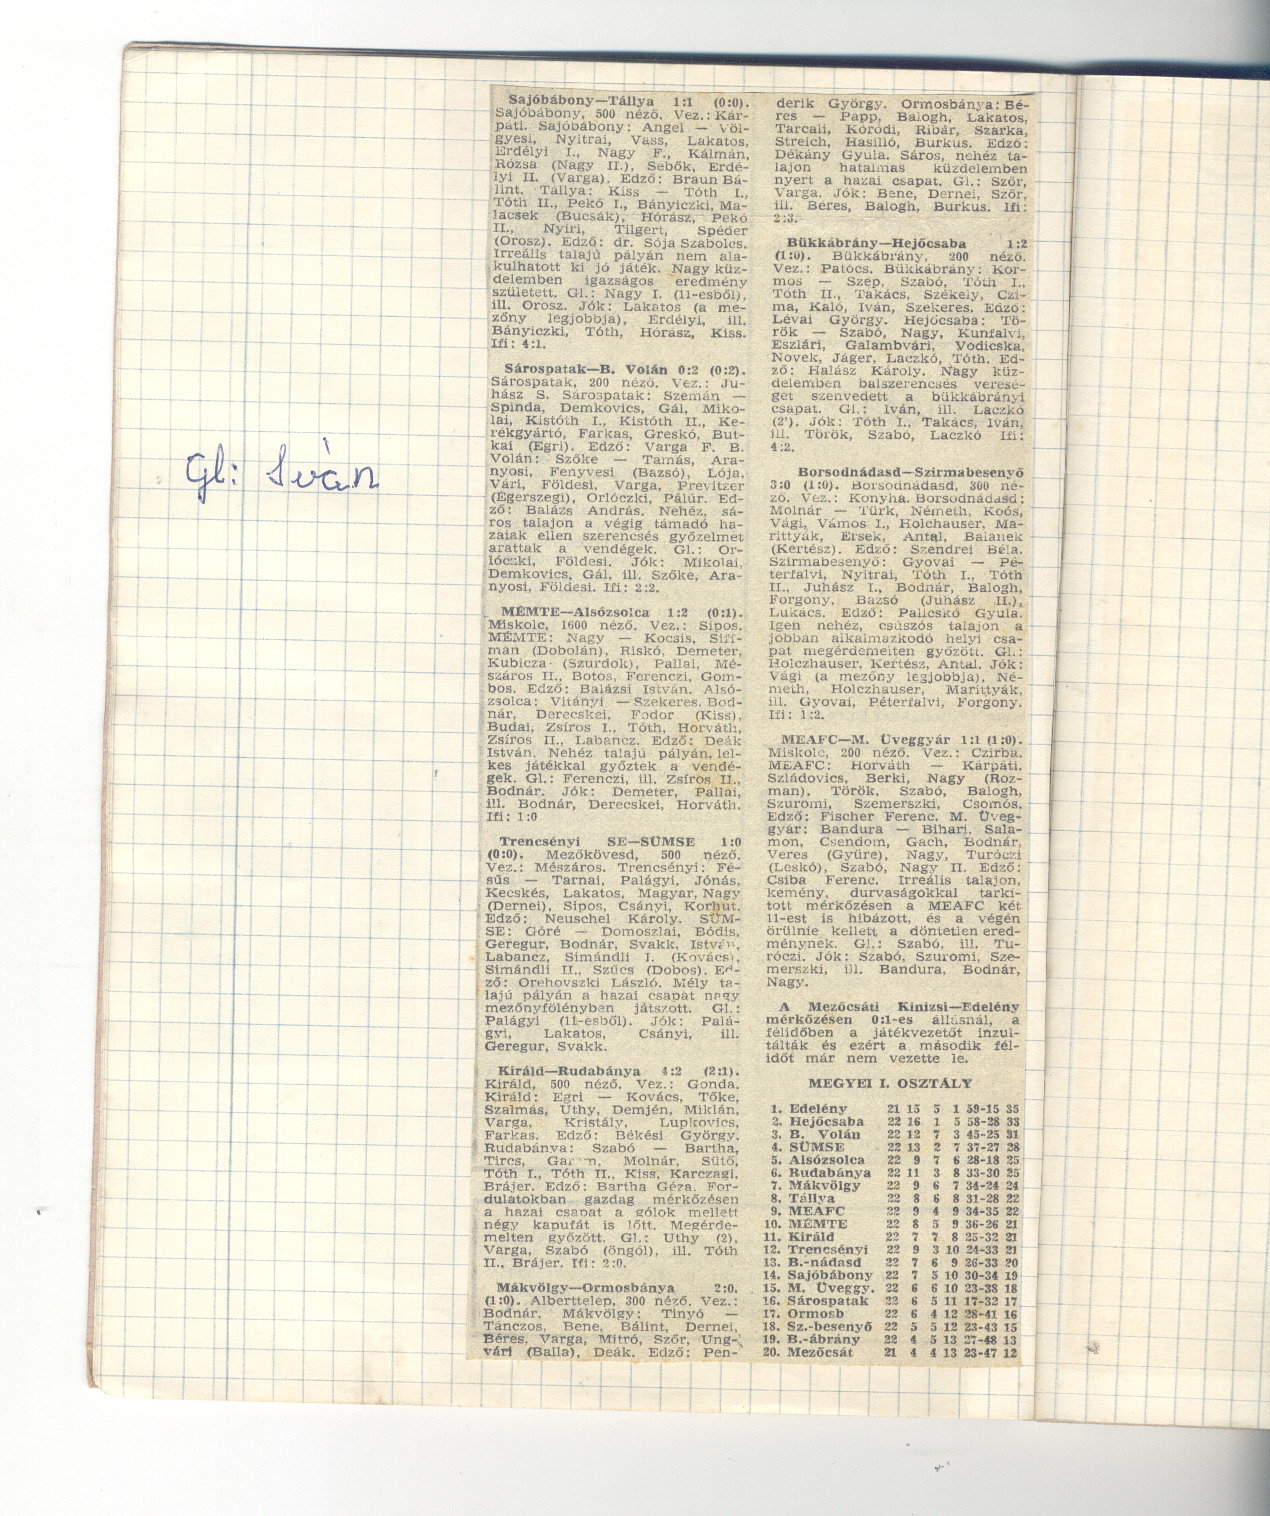 Gl: Iván
Sajóbábony—Tállya 1:1 (0:0).
Sajóbábony, 500 néző. Vez.: Kár-
páti. Sajóbábony: Angel — Völ-
gyesi, Nyitrai, Vass, Lakatos,
Erdélyi I., Nagy F., Kálmán,
Rózsa (Nagy II.), Sebők, Erdé-
lyi II. (Varga). Edző: Braun Bá-
lint. Tállya: Kiss — Tóth I.,
Tóth II., Pekó I., Bányiczki, Ma-
lacsek (Bucsák), Hórász, Pekó
II., Nyíri, Tilgert, Spéder
(Orosz). Edző: dr. Sója Szabolcs.
Irreális talajú pályán nem ala-
kulhatott ki jó játék. Nagy küz-
delemben igazságos eredmény
született. Gl.: Nagy I. (11-esből),
ill. Orosz. Jók: Lakatos (a me-
zőny legjobbja), Erdélyi, ill.
Bányiczki, Tóth, Hórász, Kiss.
Ifi: 4:1.
Sárospatak—B. Volán 0:2 (0:2).
Sárospatak, 200 néző. Vez.: Ju-
hász S. Sárospatak: Szemán —
Spinda, Demkovics, Gál, Miko-
lai, Kistóth I., Kistóth II., Ke-
rékgyártó, Farkas, Greskó, But-
kai (Egri). Edző: Varga F. B.
Volán: Szőke — Tamás, Ara-
nyosi, Fenyvesi (Bazsó), Lója,
Vári, Földesi, Varga, Previtzer
(Egerszegi), Orlóczki, Pálúr. Ed-
ző: Balázs András. Nehéz, sá-
ros talajon a végig támadó ha-
zaiak ellen szerencsés győzelmet
arattak a vendégek. Gl.: Or-
lóczki, Földesi. Jók: Mikolai,
Demkovics, Gál, ill. Szőke, Ara-
nyosi, Földesi. Ifi: 2:2.
MÉMTE—Alsózsolca 1:2 (0:1).
Miskolc, 1600 néző. Vez.: Sipos.
MÉMTE: Nagy — Kocsis, Siff-
man (Dobolán), Riskó, Demeter,
Kubicza (Szurdok), Pallai, Mé-
száros II., Botos, Ferenczi, Gom-
bos. Edző: Balázsi István. Alsó-
zsolca: Vitányi — Szekeres. Bod-
nár, Derecskei, Fodor (Kiss),
Budai, Zsíros I., Tóth, Horváth,
Zsíros II., Labancz. Edző: Deák
István. Nehéz talajú pályán, lel-
kes játékkal győztek a vendé-
gek. Gl.: Ferenczi, ill. Zsíros II.,
Bodnár. Jók: Demeter, Pallai,
ill. Bodnár, Derecskei, Horváth.
Ifi: 1:0
Trencsényi SE—SÜMSE 1:0
(0:0). Mezőkövesd, 500 néző.
Vez.: Mészáros. Trencsényi: Fé-
sűs — Tarnai, Palágyi, Jónás,
Kecskés, Lakatos, Magyar, Nagy
(Dernei), Sipos, Csányi, Korhut.
Edző: Neuschel Károly. SÜM-
SE: Góré — Domoszlai, Bódis,
Geregur, Bodnár, Svakk, István,
Labancz, Simándli I. (Kovács),
Simándli II., Szűcs (Dobos). Ed-
ző: Orehovszki László. Mély ta-
lajú pályán a hazai csapat nagy
mezőnyfölényben játszott. Gl.:
Palágyi (11-esből). Jók: Palá-
gyi, Lakatos, Csányi, ill.
Geregur, Svakk.
Királd—Rudabánya 4:2 (2:1).
Királd, 500 néző. Vez.: Gonda,
Királd: Egri — Kovács, Tőke,
Szalmás, Uthy, Demjén, Miklán,
Varga, Kristály, Lupkovics,
Farkas. Edző: Békési György.
Rudabánya: Szabó — Bartha,
Tircs, Molnár, Sütő,
Tóth I., Tóth II., Kiss, Karczagi,
Brájer. Edző: Bartha Géza. For-
dulatokban gazdag mérkőzésen
a hazai csapat a gólok mellett
négy kapufát is lőtt. Megérde-
melten győzött. Gl.: Uthy (2),
Varga, Szabó (öngól), ill. Tóth
II., Brájer. Ifi: 2:0.
Mákvölgy—Ormosbánya 2:0.
(1:0). Alberttelep, 300 néző. Vez.:
Bodnár. Mákvölgy: Tinyó —
Tánczos, Bene, Bálint, Dernei,
Béres, Varga, Mitró, Szőr, Ung-
vári (Balla), Deák. Edző: Pen-
derik György. Ormosbánya: Bé-
res — Papp, Balogh, Lakatos,
Tarcali, Kóródi, Ribár, Szarka,
Streich, Hasilló, Burkus. Edző:
Dékány Gyula. Sáros, nehéz ta-
lajon hatalmas küzdelemben
nyert a hazai csapat. Gl.: Szőr,
Varga. Jók: Bene, Dernei, Szőr,
ill. Béres, Balogh, Burkus. Ifi:
2:3.
Bükkábrány—Hejőcsaba 1:2
(1:0). Bükkábrány, 200 néző.
Vez.: Patócs. Bükkábrány: Kor-
mos — Szép, Szabó, Tóth I.,
Tóth II., Takács, Székely, Czi-
ma, Kaló, Iván, Szekeres. Edző:
Lévai György. Hejőcsaba: Tö-
rök — Szabó, Nagy, Kunfalvi,
Eszlári, Galambvári, Vodicska,
Novek, Jáger, Laczkó, Tóth. Ed-
ző: Halász Károly. Nagy küz-
delemben balszerencsés veresé-
get szenvedett a bükkábrányi
csapat. Gl.: Iván, ill. Laczkó
(2'). Jók: Tóth I., Takács, Iván,
ill. Török, Szabó, Laczkó Ifi:
4:2.
Borsodnádasd—Szirmabesenyő
3:0 (1:0). Borsodnádasd, 300 né-
ző. Vez.: Konyha. Borsodnádasd:
Molnár — Türk, Németh, Koós,
Vági, Vámos I., Holchauser, Ma-
rittyák, Érsek, Antal, Balanek
(Kertész). Edző: Szendrei Béla.
Szirmabesenyő: Gyovai — Pé-
terfalvi, Nyitrai, Tóth I., Tóth
II., Juhász I., Bodnár, Balogh,
Forgony, Bazsó (Juhász II.),
Lukács. Edző: Palicskó Gyula.
Igen nehéz, csúszós talajon a
jobban alkalmazkodó helyi csa-
pat megérdemelten győzött. Gl.:
Holczhauser, Kertész, Antal. Jók:
Vági (a mezőny legjobbja), Né-
meth, Holczhauser, Marittyák,
ill. Gyovai, Péterfalvi, Forgony.
Ifi: 1:2.
MEAFC—M. Üveggyár 1:1 (1:0).
Miskolc, 200 néző. Vez.: Czirba.
MEAFC: Horváth — Kárpáti,
Szládovics, Berki, Nagy (Roz-
man), Török, Szabó, Balogh,
Szuromi, Szemerszki, Csomós.
Edző: Fischer Ferenc. M. Üveg-
gyár: Bandura — Bihari, Sala-
mon, Csendom, Gach, Bodnár,
Veres (Gyüre), Nagy, Turóczi
(Leskó), Szabó, Nagy II. Edző:
Csiba Ferenc. Irreális talajon,
kemény, durvaságokkal tarkí-
tott mérkőzésen a MEAFC két
11-est is hibázott, és a végén
örülnie kellett a döntetlen ered-
ménynek. Gl.: Szabó, ill. Tu-
róczi. Jók: Szabó, Szuromi, Sze-
merszki, ill. Bandura, Bodnár,
Nagy.
A Mezőcsáti Kinizsi—Edelény
mérkőzésen 0:1-es állásnál, a
félidőben a játékvezetőt inzul-
tálták és ezért a második fél-
időt már nem vezette le.
MEGYEI I. OSZTÁLY
1. Edelény 21 15 5 1 59-15 35
2. Hejőcsaba 22 16 1 5 58-28 33
3. B. Volán 22 12 7 3 45-25 31
4. SÜMSE 22 13 2 7 37-27 28
5. Alsózsolca 22 9 7 6 28-18 25
6. Rudabánya 22 11 3 8 33-30 25
7. Mákvölgy 22 9 6 7 34-24 24
8. Tállya 22 8 6 8 31-28 22
9. MEAFC 22 9 4 9 34-35 22
10. MÉMTE 22 8 5 9 36-26 21
11. Királd 22 7 7 8 25-32 21
12. Trencsényi 22 9 3 10 24-33 21
13. B.-nádasd 22 7 6 9 26-33 20
14. Sajóbábony 22 7 5 10 30-34 19
15. M. Üveggy. 22 6 6 10 23-38 18
16. Sárospatak 22 6 5 11 17-32 17
17. Ormosb 22 6 4 12 28-41 16
18. Sz.-besenyő 22 5 5 12 23-43 15
19. B.-ábrány 22 4 5 13 27-48 13
20. Mezőcsát 21 4 4 13 23-47 12